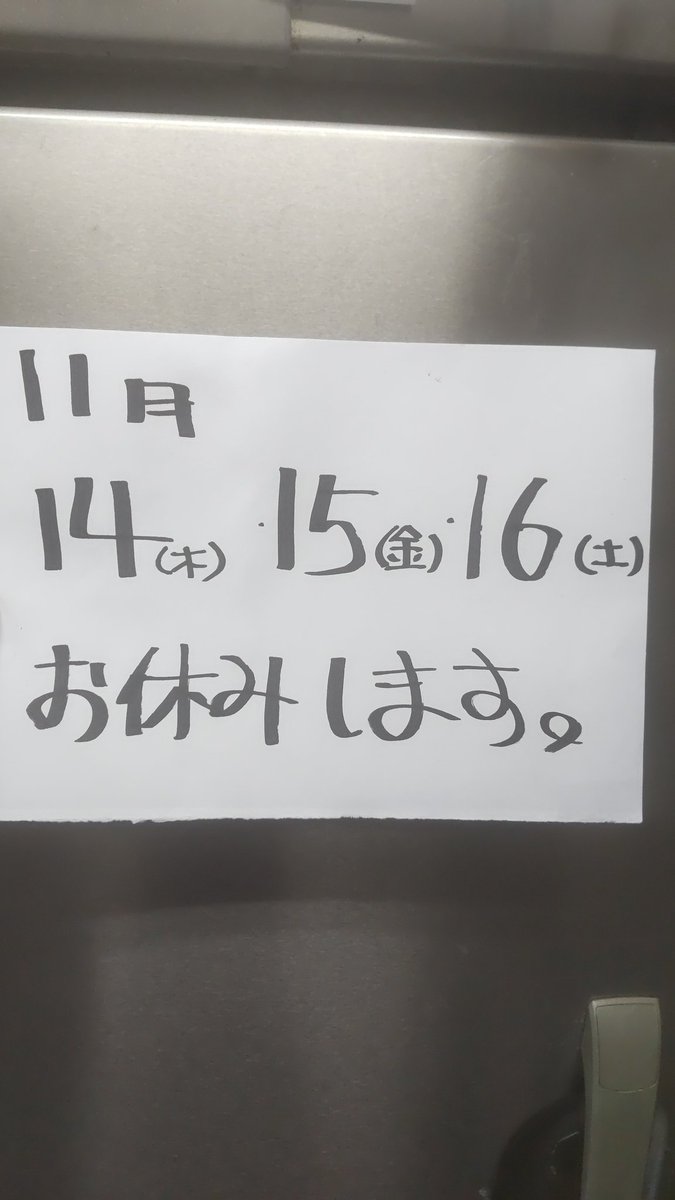 11月
14(木)・15(金)・16(土)
お休みします。